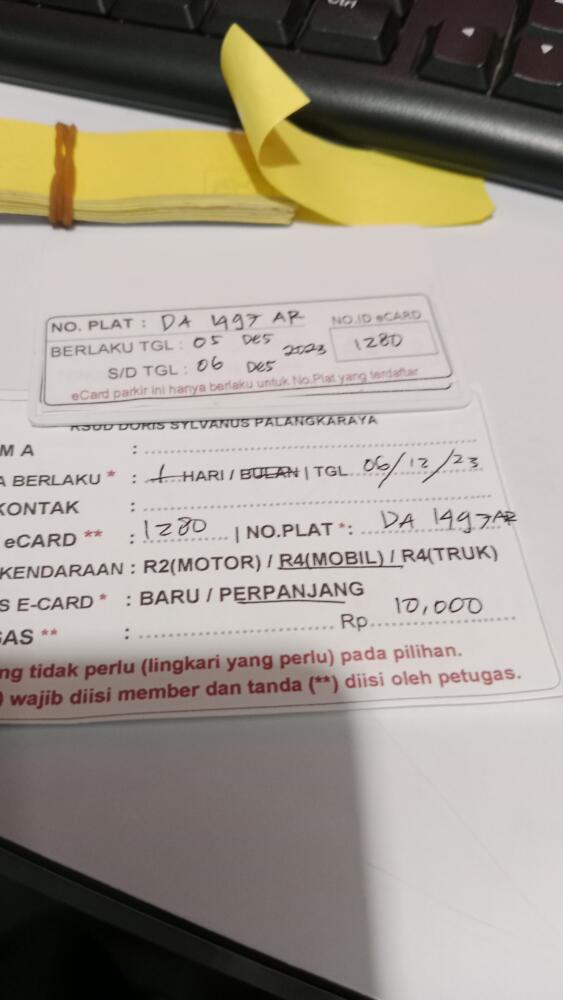 Ctrl
NO. PLAT : DA 1497 AR
NO.ID eCARD
BERLAKU TGL : 05 DES 2023
1280
S/D TGL : 06 DES
eCard parkir ini hanya berlaku untuk No.Plat yang terdaftar
RSUD DORIS SYLVANUS PALANGKARAYA
M A :
A BERLAKU * : 1 HARI / BULAN | TGL 06/12/23
KONTAK :
eCARD ** : 1280 | NO.PLAT *: DA 1497 AR
KENDARAAN : R2(MOTOR) / R4(MOBIL) / R4(TRUK)
S E-CARD * : BARU / PERPANJANG
GAS ** : Rp. 10,000
ng tidak perlu (lingkari yang perlu) pada pilihan.
) wajib diisi member dan tanda (**) diisi oleh petugas.